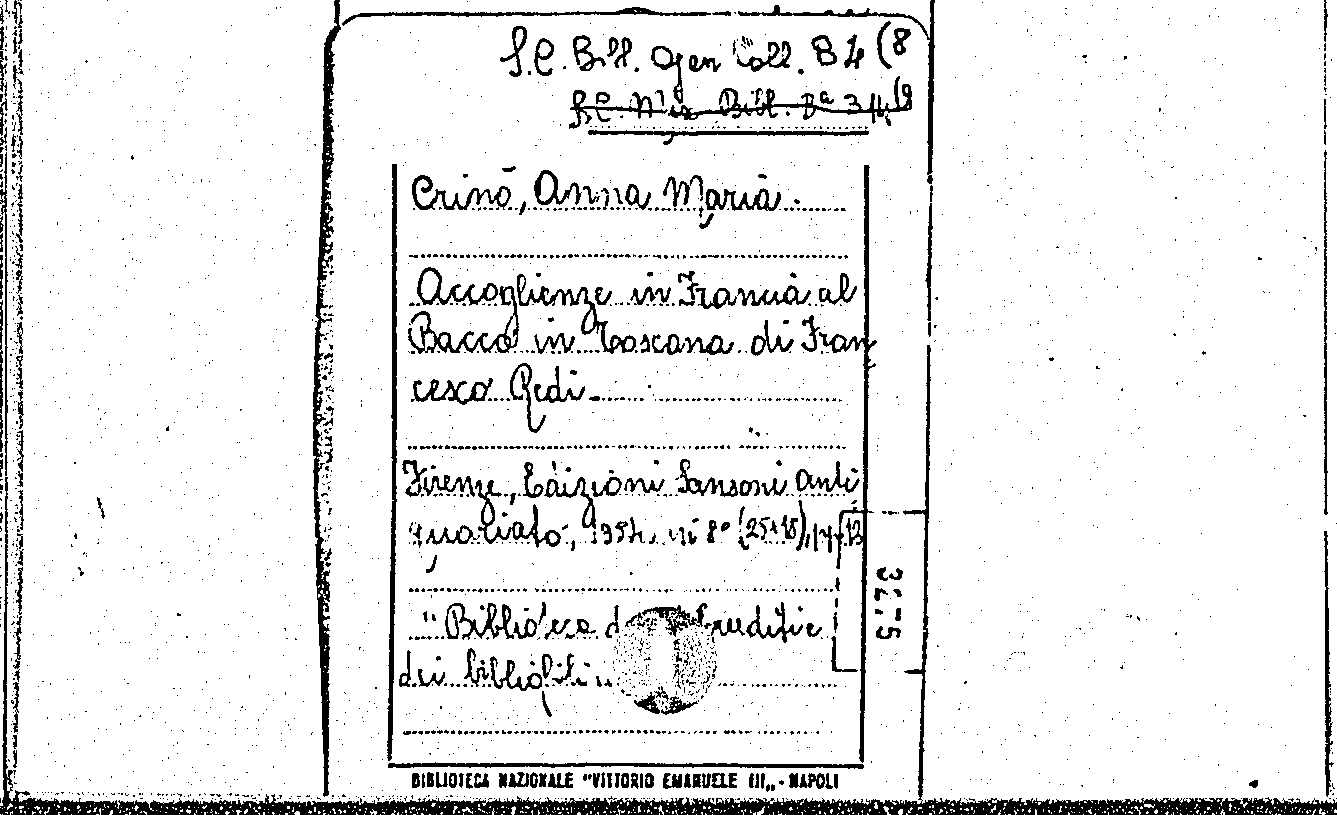 S.C. Bibl. Gen Coll. B 4 (8
S.C. Mis Bibl. Bª 3/4(9
Crinò, Anna Maria.
Accoglienze in Francia al
Bacco in Toscana di Fran
cesco Redi.
Firenze, Edizioni Sansoni Anti
quariato, 1954. in 8º (25x18),
"Biblioteca d Eruditi e
dei bibliofili"
3275
BIBLIOTECA NAZIONALE "VITTORIO EMANUELE III„ - NAPOLI